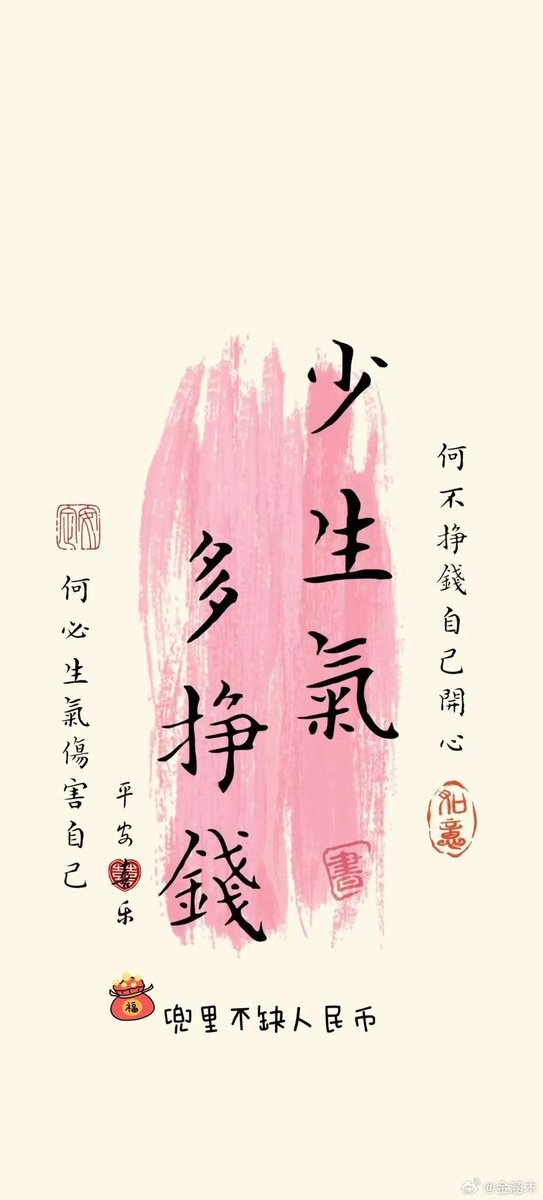 少生氣
多掙錢
何不掙錢自己開心
如意
書
安定
何必生氣傷害自己
平安喜乐
福
兜里不缺人民币
@金涵木